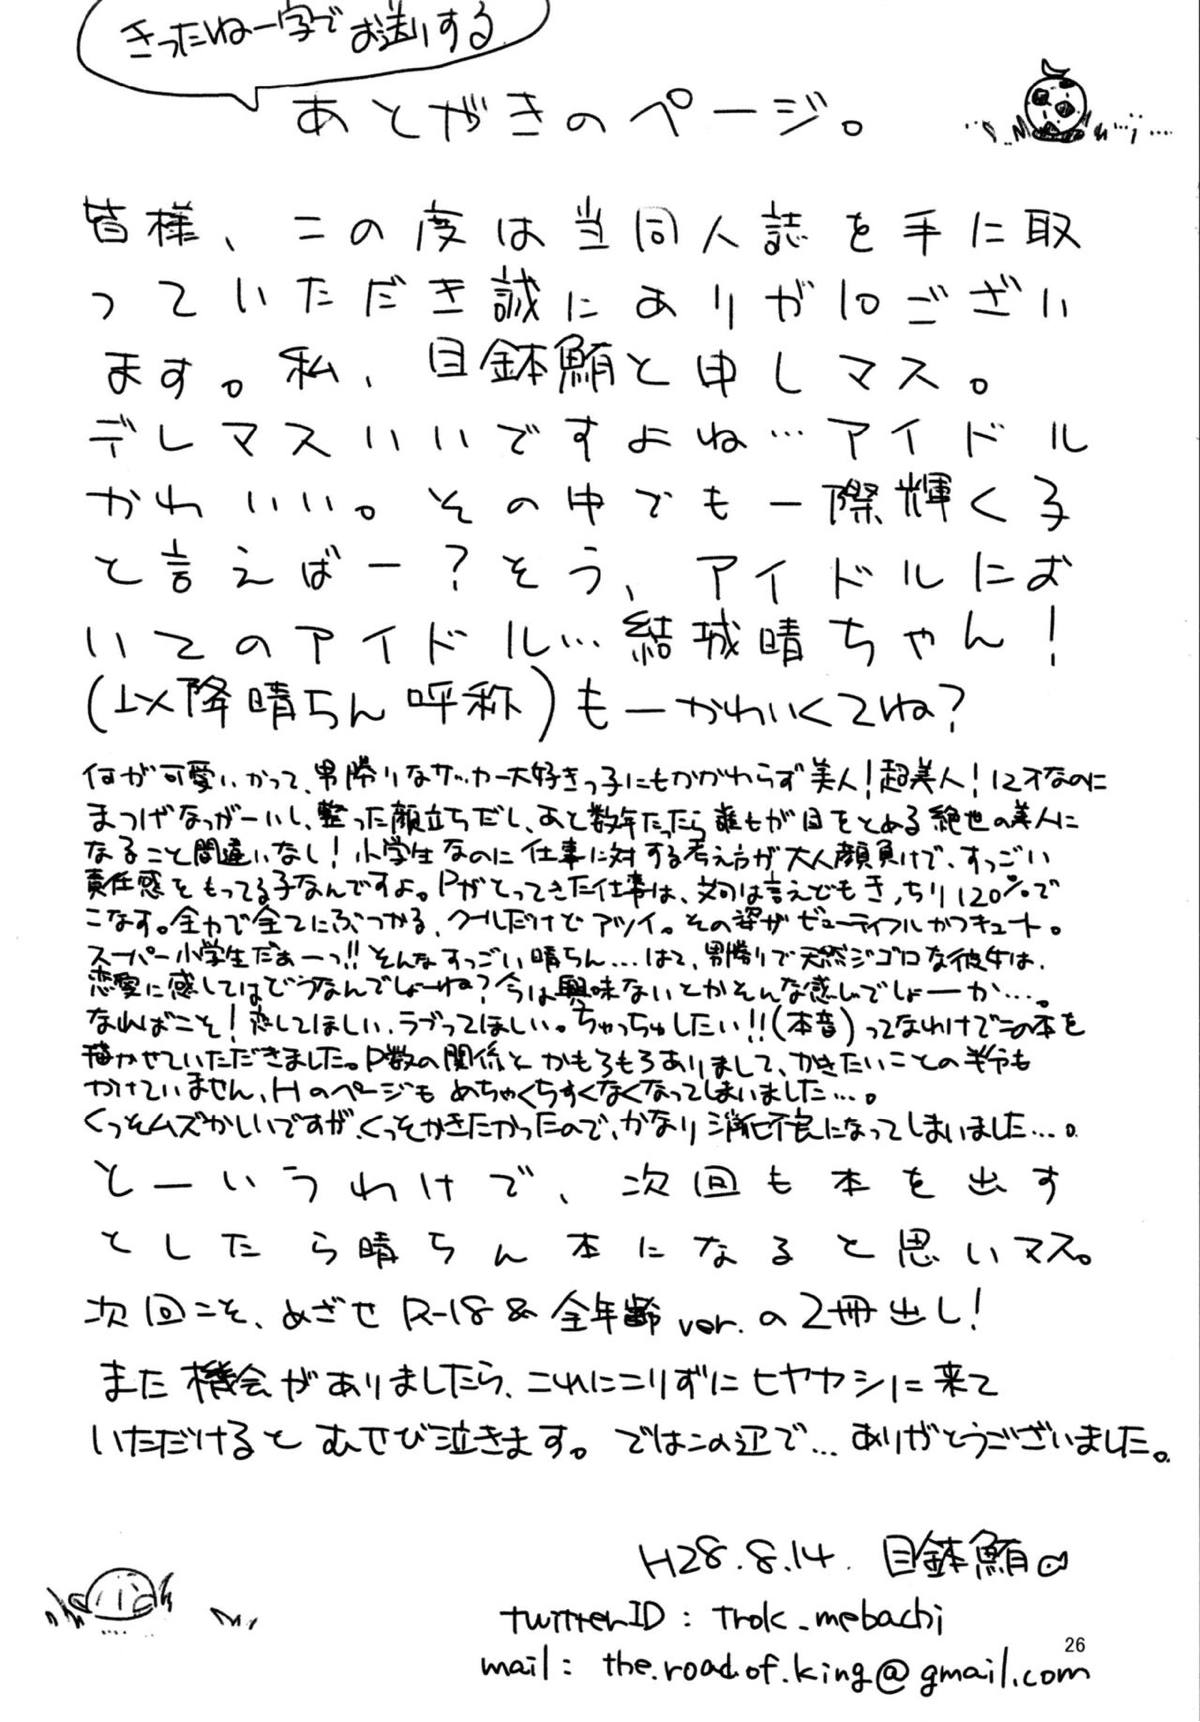 きったねー字でお送りする
あとがきのページ。
皆様、この度は当同人誌を手に取
っていただき誠にありがとございい
ます。私、目鉢鮪と申しマス。
デレマスいいですよね…アイドル
かわいい。その中でも一際輝く子
と言えばー?そう、アイドルにお
いてのアイドル…結城晴ちゃん!
(以降晴ちん呼称)もーかわいくてね?
何が可愛いかって、男勝りなサッカー大好きっ子にもかかわらず美人!超美人!12才なのに
まつげなっがーいし、整った顔立ちだし、あと数年たったら誰もが目をとめる絶世の美人に
なること間違いなし!小学生なのに仕事に対する考え方が大人顔負けで、すっごい
責任感をもってる子なんですよ。Pがとってきた仕事は、文句は言えどもきっちり120%で
こなす。全力で全てにぶつかる、クールだけどアツイ。その姿がビューティフルかつキュート。
スーパー小学生だぁーっ!!そんなすっごい晴ちん…はて、男勝りで天然ジゴロな彼女は、
恋愛に感してはどうなんでしょーね?今は興味ないとかそんな感じでしょーか…。
なればこそ!恋してほしい、ラブってほしい。ちゃっちゅしたい!!(本音)ってなわけでこの本を
描かせていただきました。P数の関係とかもろもろありまして、かきたいことの半分も
かけていません、Hのページもめちゃくちすくなくなってしまいました…。
くっそムズかしいですが、くっそかきたかったので、かなり消化不良になってしまいました…。
とーいうわけで、次回も本を出す
としたら晴ちん本になると思いマス。
次回こそ、めざせR-18&全年齢ver.の2冊出し!
また機会がありましたら、これにこりずにヒヤカシに来て
いただけるとむせび泣きます。ではこの辺で…ありがとうございました。
H28.8.14. 目鉢鮪
twitterID : Trok_mebachi
26
mail : the.road.of.king@gmail.com